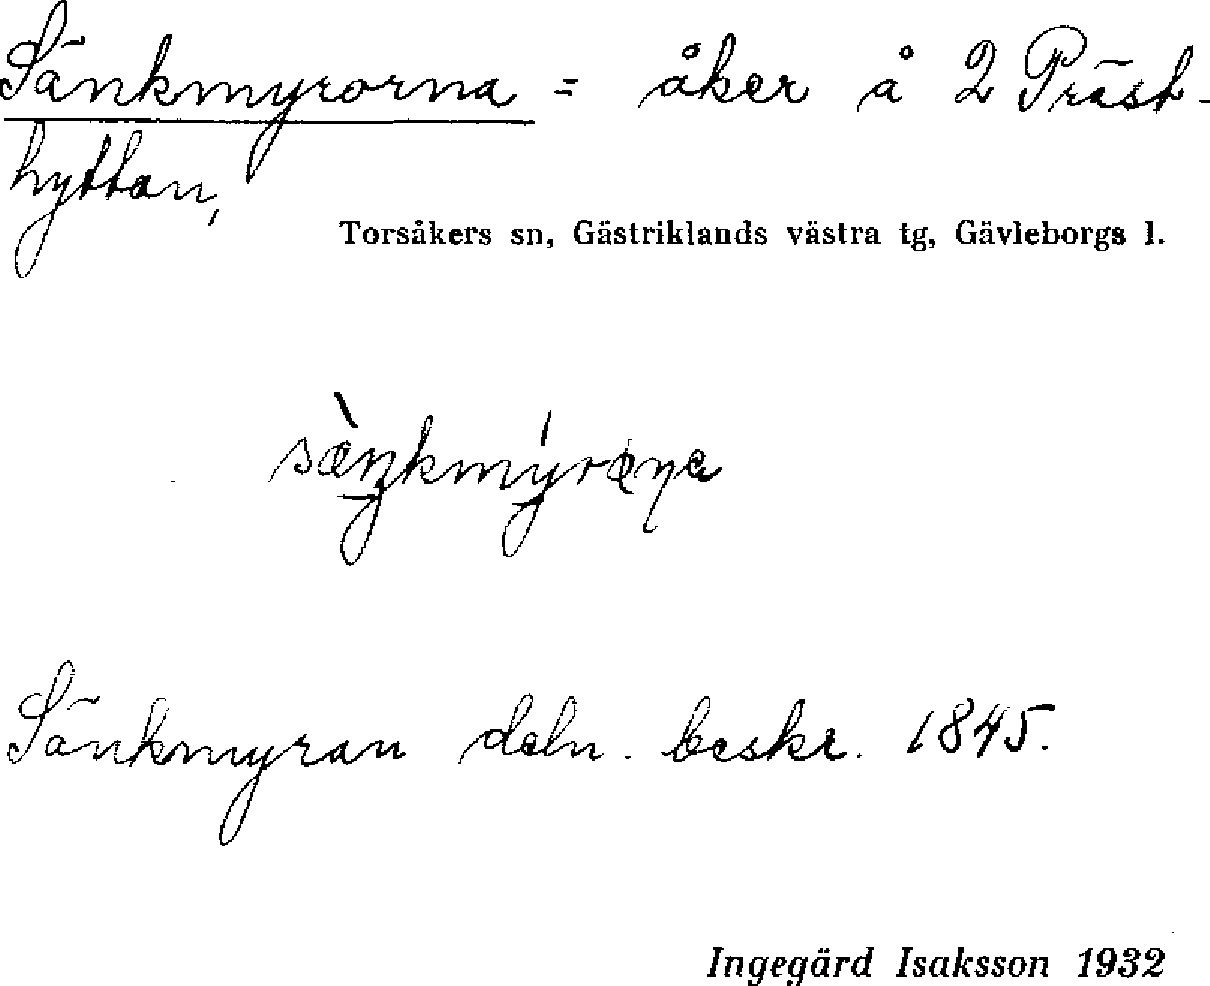 Sänkmyrorna = åker å 2 Präst-
hyttan,
Torsåkers sn, Gästriklands västra tg, Gävleborgs l.
Sänkmyran deln. beskr. 1845.
Ingegärd Isaksson 1932